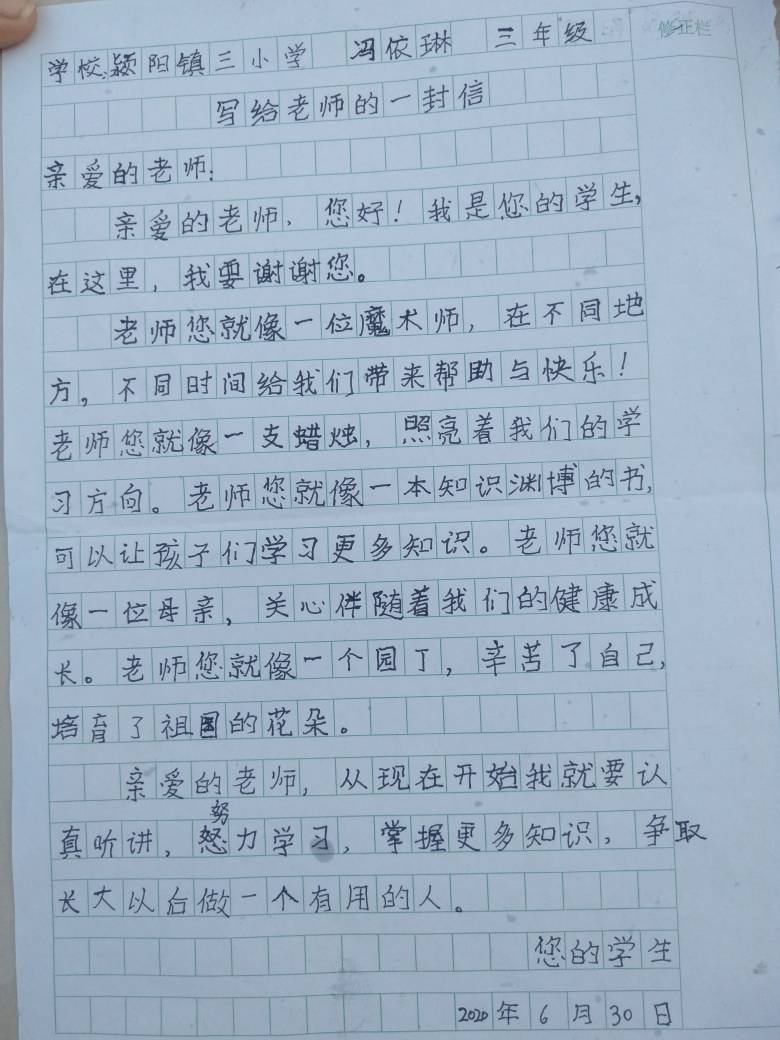 修正栏
学校:颍阳镇三小学 冯依琳 三年级
写给老师的一封信
亲爱的老师:
亲爱的老师、您好！我是您的学生,
在这里，我要谢谢您。
老师您就像一位魔术师，在不同地
方，不同时间给我们带来帮助与快乐！
老师您就像一支蜡烛，照亮着我们的学
习方向。老师您就像一本知识渊博的书,
可以让孩子们学习更多知识。老师您就
像一位母亲，关心伴随着我们的健康成
长。老师您就像一个园丁，辛苦了自己,
培育了祖国的花朵。
亲爱的老师，从现在开始我就要认
努
真听讲，怒力学习，掌握更多知识，争取
长大以后做一个有用的人。
您的学生
2020年6月30日